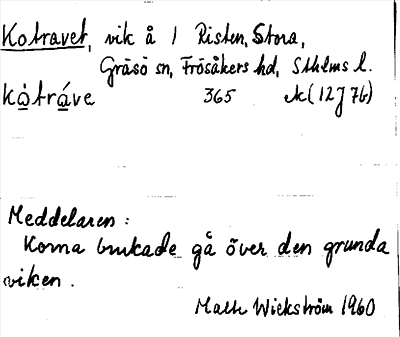 Kotravet, vik å 1 Risten, Stora,
Gräsö sn, Frösåkers hd, Sthlms l.
kòtráve 365 ek (12J 7b)
Meddelaren :
Korna brukade gå över den grunda
viken .
Malte Wickström 1960